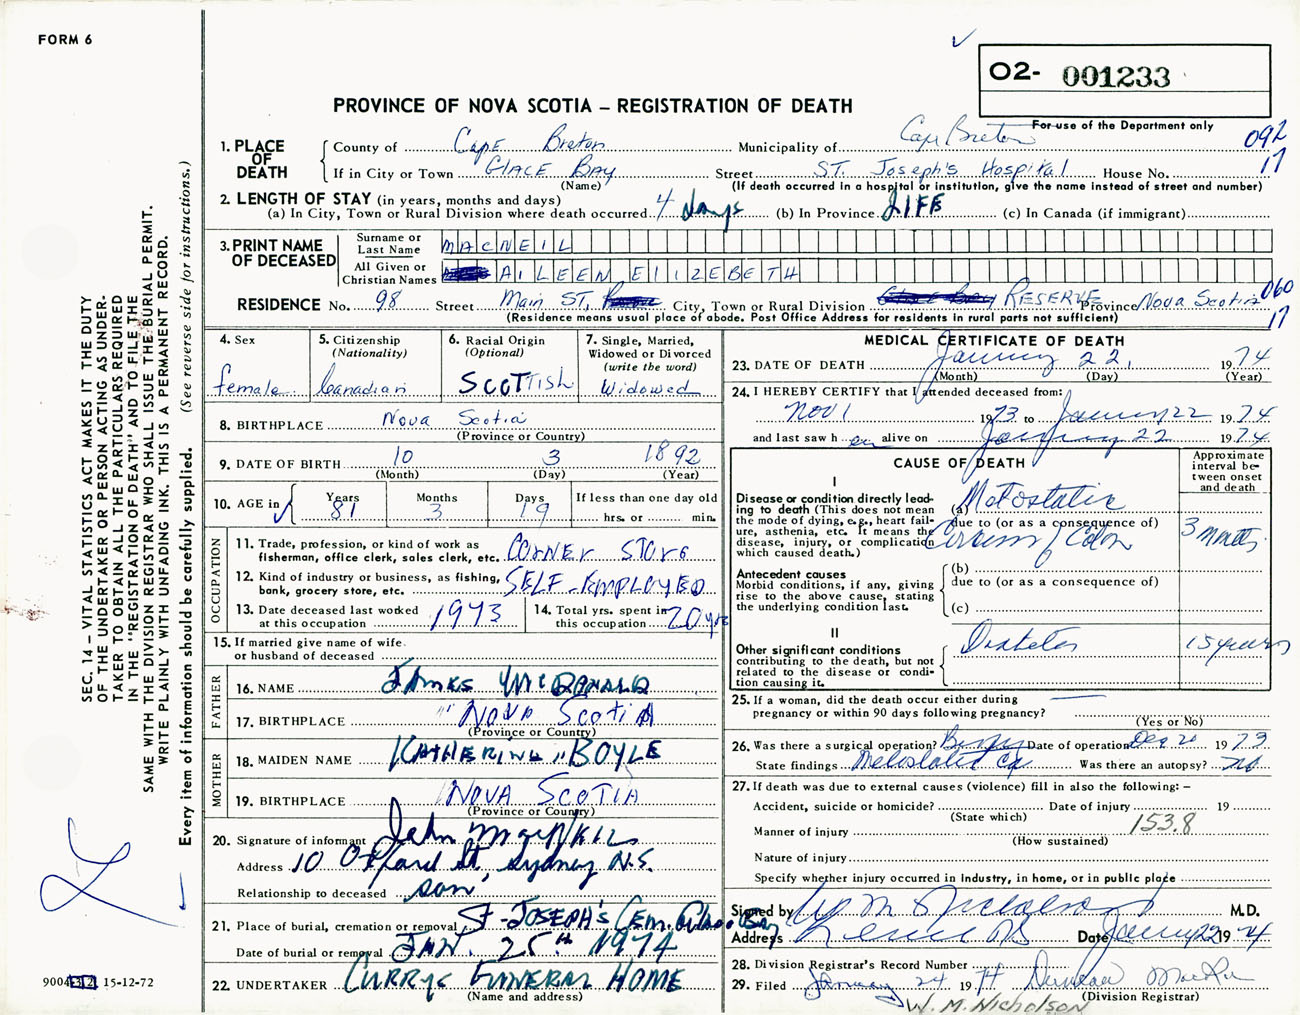 FORM 6
O2- 001233
PROVINCE OF NOVA SCOTIA – REGISTRATION OF DEATH
For use of the Department only
092
17
1. PLACE OF DEATH
County of Cape Breton Municipality of Cape Breton
If in City or Town GLACE BAY Street ST. Joseph's Hospital House No.
(Name) (If death occurred in a hospital or institution, give the name instead of street and number)
2. LENGTH OF STAY (in years, months and days)
(a) In City, Town or Rural Division where death occurred 4 days (b) In Province LIFE (c) In Canada (if immigrant)
3. PRINT NAME OF DECEASED
Surname or Last Name MACNEIL
All Given or Christian Names AILEEN ELIZEBETH
RESIDENCE No. 98 Street Main ST. City, Town or Rural Division RESERVE Province Nova Scotia 060
17
(Residence means usual place of abode. Post Office Address for residents in rural parts not sufficient)
4. Sex
female
5. Citizenship (Nationality)
Canadian
6. Racial Origin (Optional)
SCOTTISH
7. Single, Married, Widowed or Divorced (write the word)
Widowed
8. BIRTHPLACE Nova Scotia
(Province or Country)
9. DATE OF BIRTH 10 3 1892
(Month) (Day) (Year)
10. AGE in Years 81 Months 3 Days 19 If less than one day old hrs. or min.
OCCUPATION
11. Trade, profession, or kind of work as fisherman, office clerk, sales clerk, etc. CORNER STORE
12. Kind of industry or business, as fishing, bank, grocery store, etc. SELF-EMPLOYED
13. Date deceased last worked at this occupation 1973
14. Total yrs. spent in this occupation 20 yrs
15. If married give name of wife or husband of deceased
FATHER
16. NAME JAMES McDONALD
17. BIRTHPLACE " NOVA SCOTIA
(Province or Country)
MOTHER
18. MAIDEN NAME KATHERINE "BOYLE
19. BIRTHPLACE NOVA SCOTIA
(Province or Country)
20. Signature of informant John
Address 10 Oxford St, Sydney N.S.
Relationship to deceased son
21. Place of burial, cremation or removal ST-JOSEPH'S Cem. Glace Bay
Date of burial or removal JAN. 25th 1974
22. UNDERTAKER CURRYS FUNERAL HOME
(Name and address)
MEDICAL CERTIFICATE OF DEATH
23. DATE OF DEATH January 22, 1974
(Month) (Day) (Year)
24. I HEREBY CERTIFY that I attended deceased from:
Nov 1 1973 to January 22 1974
and last saw h er alive on January 22 1974
CAUSE OF DEATH
Approximate interval between onset and death
I
Disease or condition directly leading to death (This does not mean the mode of dying, e.g., heart failure, asthenia, etc. It means the disease, injury, or complication which caused death.)
(a) Metastatic
due to (or as a consequence of)
Carcinoma of Colon
3 months
Antecedent causes
Morbid conditions, if any, giving rise to the above cause, stating the underlying condition last.
(b)
due to (or as a consequence of)
(c)
II
Other significant conditions contributing to the death, but not related to the disease or condition causing it.
Diabetes
15 years
25. If a woman, did the death occur either during pregnancy or within 90 days following pregnancy?
(Yes or No)
26. Was there a surgical operation? Biopsy Date of operation Dec 20 1973
State findings Metastatic Ca Was there an autopsy? no
27. If death was due to external causes (violence) fill in also the following: –
Accident, suicide or homicide? Date of injury 19
(State which)
Manner of injury 153.8
(How sustained)
Nature of injury
Specify whether injury occurred in Industry, in home, or in public place
Signed by W M Nicholson M.D.
Address Date January 22 1974
28. Division Registrar's Record Number
29. Filed January 24 1974
(Division Registrar)
W. M. NICHOLSON
SEC. 14 – VITAL STATISTICS ACT MAKES IT THE DUTY
OF THE UNDERTAKER OR PERSON ACTING AS UNDER-
TAKER TO OBTAIN ALL THE PARTICULARS REQUIRED
IN THE "REGISTRATION OF DEATH" AND TO FILE THE
SAME WITH THE DIVISION REGISTRAR WHO SHALL ISSUE THE BURIAL PERMIT.
WRITE PLAINLY WITH UNFADING INK. THIS IS A PERMANENT RECORD.
Every item of information should be carefully supplied. (See reverse side for instructions.)
15-12-72